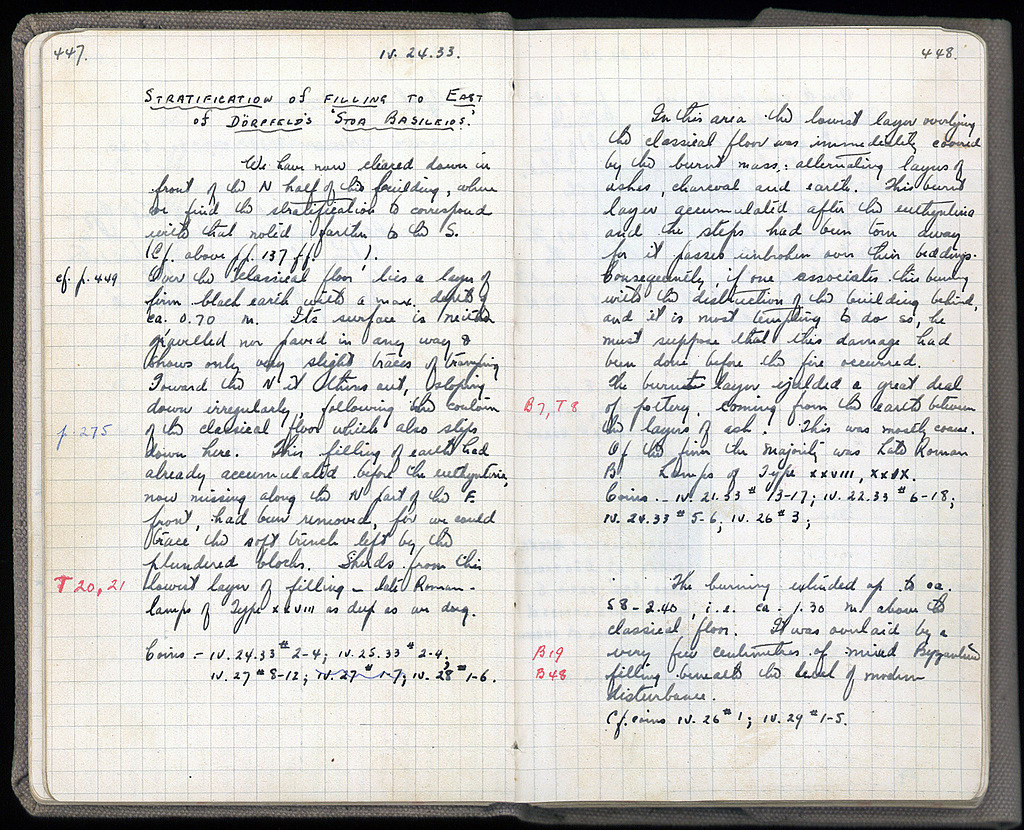 447.
IV. 24.33.
STRATIFICATION OF FILLING TO EAST
OF DÖRPFELD'S 'STOA BASILEIOS.'
We have now cleared down in
front of the N half of the building, where
we find the stratification to correspond
with that noted farther to the S.
(Cf. above pp. 137 ff. ).
cf. p. 449
Over the classical floor lies a layer of
firm black earth with a max. depth of
ca. 0.70 m. Its surface is neither
gravelled nor paved in any way &
shows only very slight traces of tramping
Toward the N it thins out, sloping
down irregularly, following the contour
p. 275
of the classical floor which also slips
down here. This filling of earth had
already accumulated before the euthynteria,
now missing along the N part of the E.
front, had been removed, for we could
trace the soft trench left by the
plundered blocks. Sherds from this
T 20, 21
lowest layer of filling - late Roman -
lamps of Type XXVIII as deep as we dug.
Coins - IV. 24.33 # 2-4; IV. 25.33 # 2-4,
IV. 27 # 8-12; IV. 27 # 1-7; IV. 28 # 1-6.
448.
In this area the lowest layer overlying
the classical floor was immediately covered
by the burnt mass: alternating layers of
ashes, charcoal and earth. This burnt
layer accumulated after the euthynteria
and the steps had been torn away
for it passes unbroken over their beddings.
Consequently, if one associates this burning
with the destruction of the building behind,
and it is most tempting to do so, he
must suppose that this damage had
been done before the fire occurred.
The burnt layer yielded a great deal
B7, T8
of pottery, coming from the earth between
the layers of ash. This was mostly coarse.
Of the finer the majority was Late Roman
B. Lamps of Type XXVIII, XXIX.
Coins - IV. 21.33 # 13-17; IV. 22.33 # 6-18;
IV. 24.33 # 5-6, IV. 26 # 3;
The burning extended up to ca.
58-2.40, i.e. ca. 1.30 m above the
classical floor. It was overlaid by a
B19
very few centimetres of mixed Byzantine
B48
filling beneath the level of modern
disturbance.
Cf. coins IV. 26 # 1; IV. 29 # 1-5.